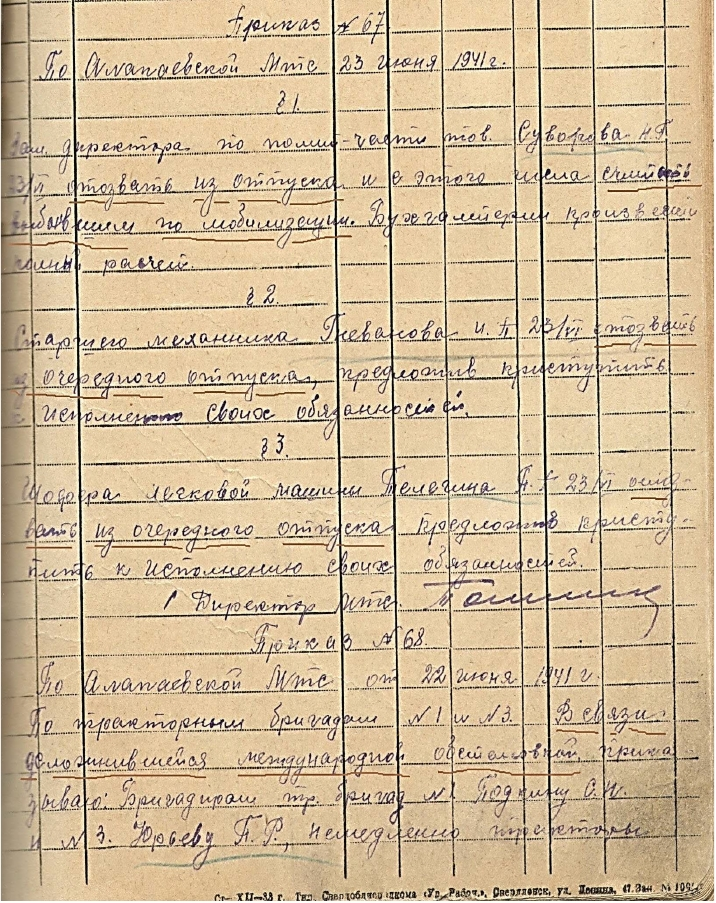 Приказ № 67
По Алапаевской Мтс 23 июня 1941 г.
§ 1.
Зам. директора по полит-части тов. Суворова Н.П.
23/VI отозвать из отпуска и с этого числа считать
выбывшим по мобилизации. Бухгалтерии произвести
полный расчет.
§ 2.
Старшего механника И. П. 23/VI отозвать
из очередного отпуска, предложив приступить
к исполнению своих обязанностей.
§ 3.
Шофера легковой машины Телегина П. 23/VI отоз-
вать из очередного отпуска предложив присту-
пить к исполнению своих обязанностей.
Директор Мтс.
Приказ № 68
По Алапаевской Мтс от 22 июня 1941 г.
По тракторным бригадам № 1 и № 3. В связи
сложившейся международной обстановкой, прика
зываю: Бригадирам тр. бригад № 1
и № 3. Юрьеву П.Р., немедленно тракторы
XII—38 г. Тип. «Ур. Рабоч.», Свердловск, ул. Ленина, 47. Зак. №